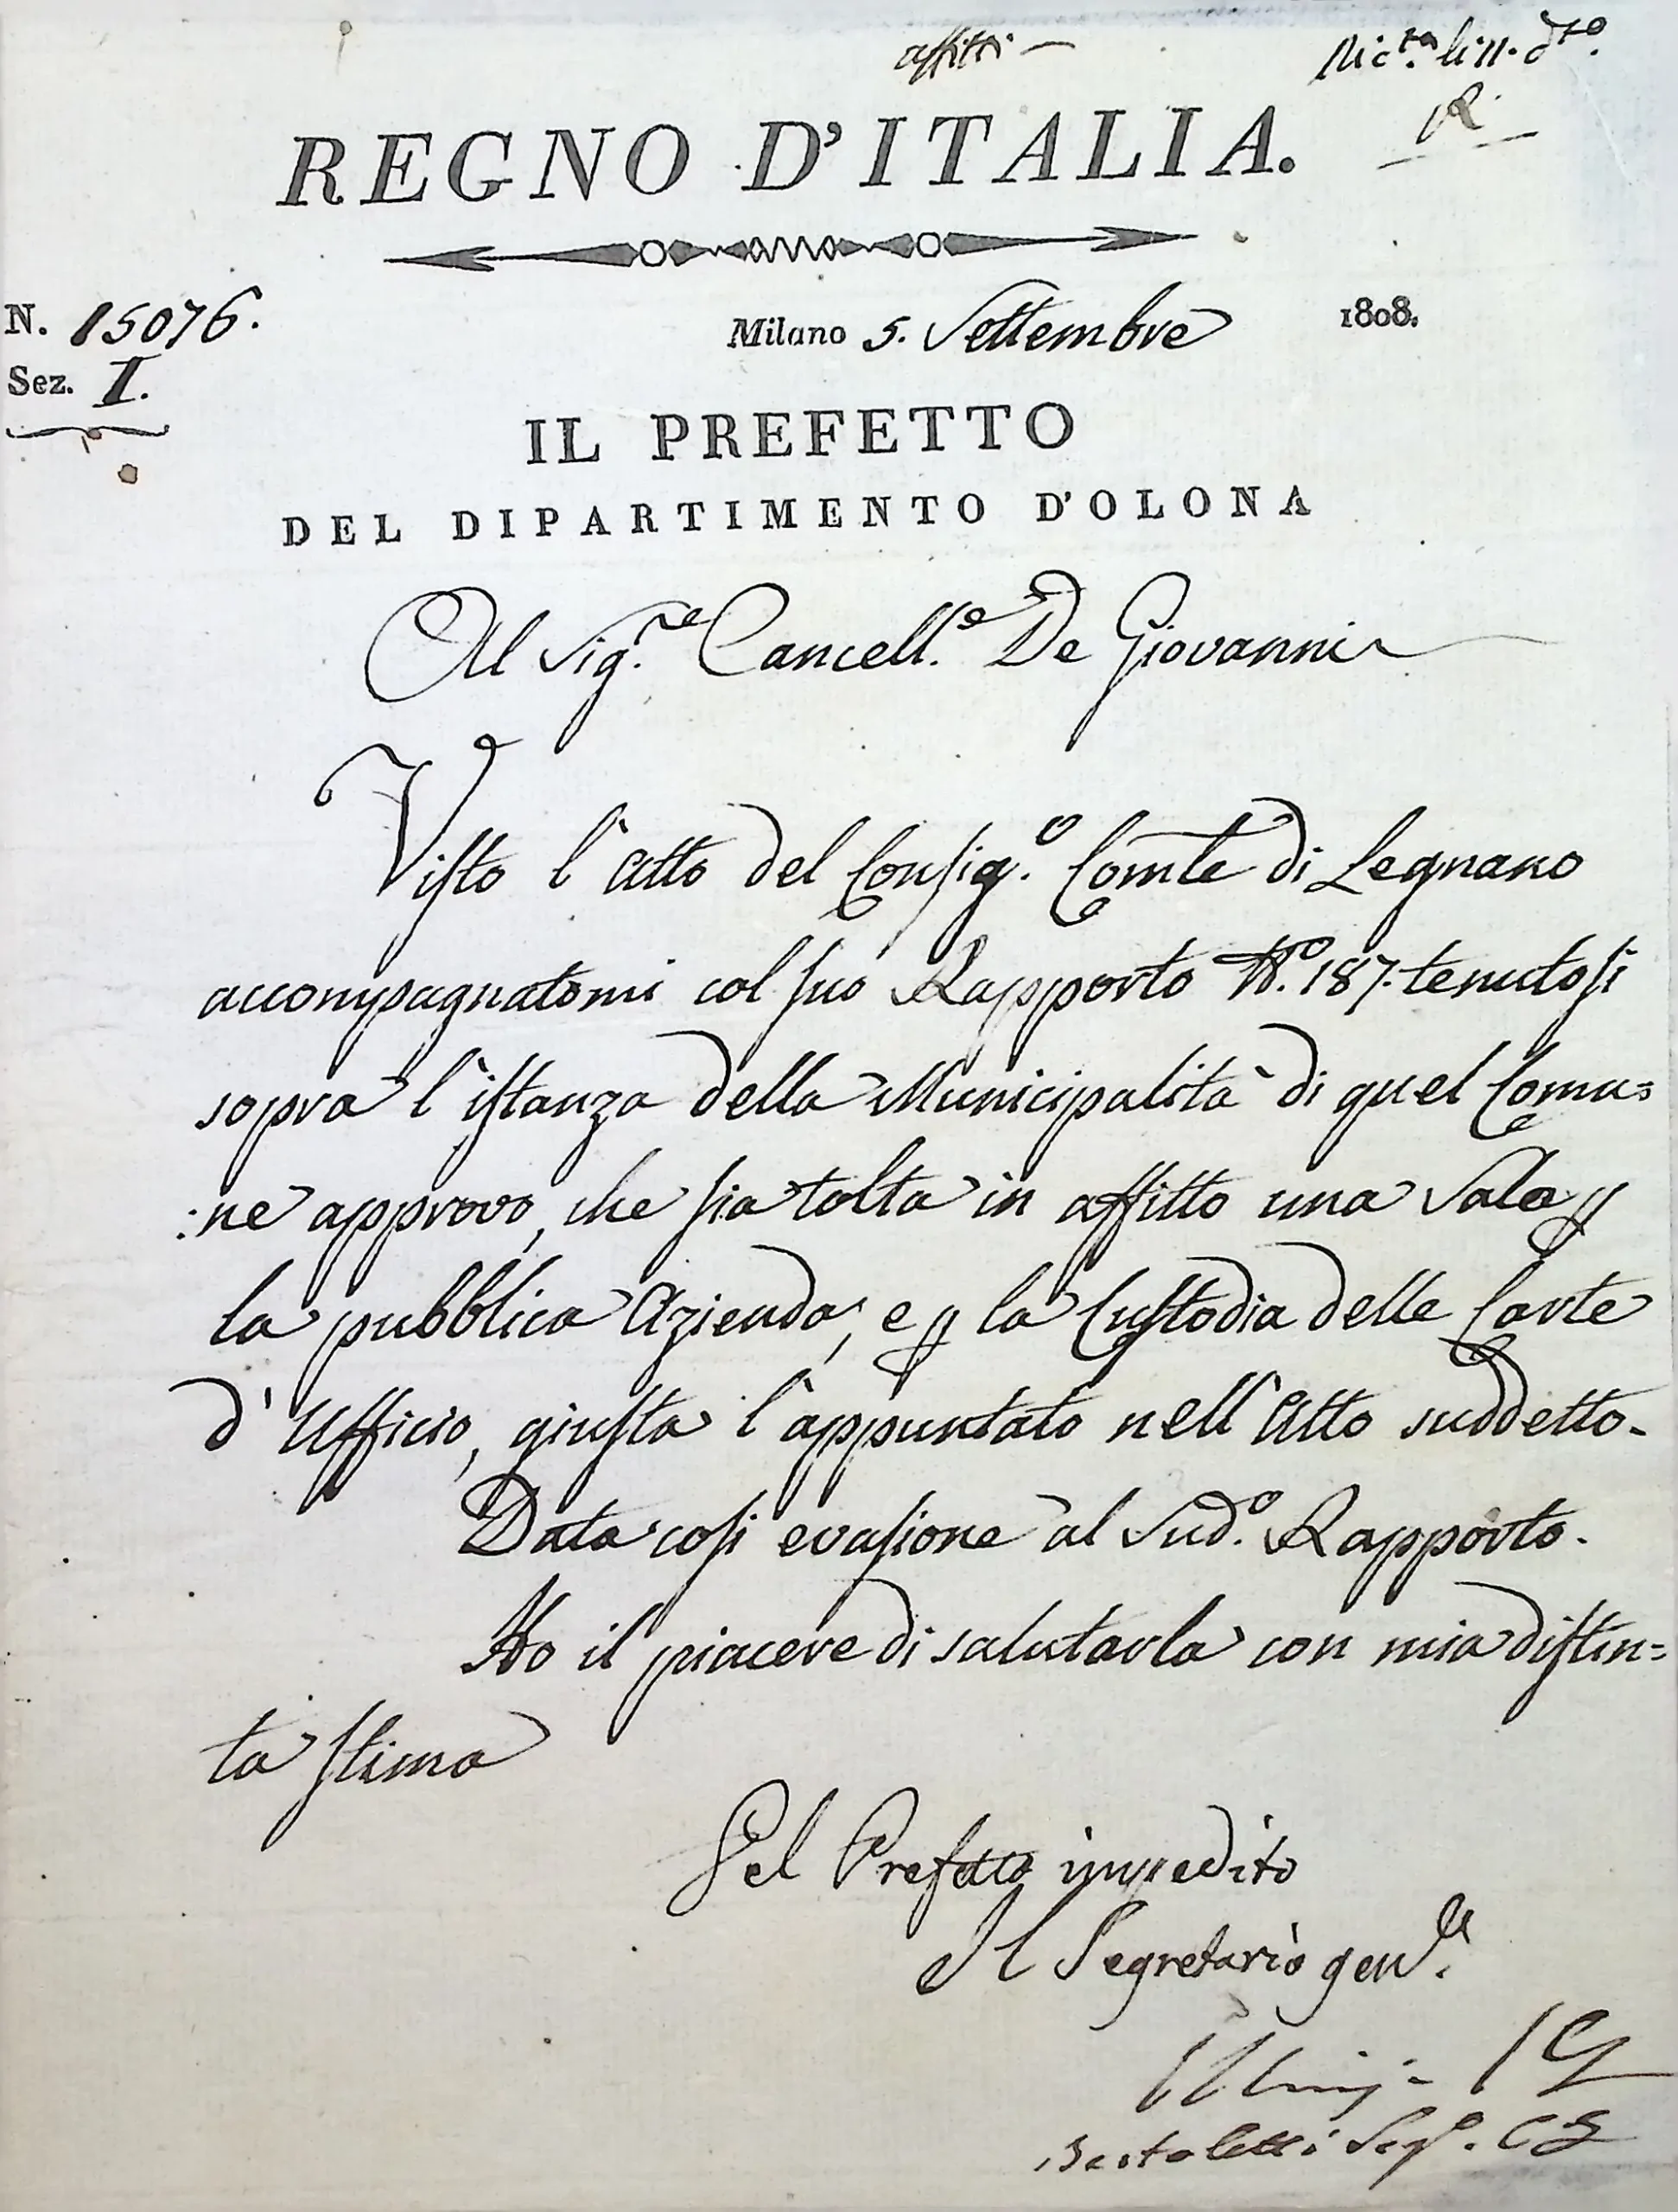 affitti —
REGNO D'ITALIA.
N. 15076.
Milano 5. Settembre 1808.
Sez. I.
IL PREFETTO
DEL DIPARTIMENTO D'OLONA
Al Sig.re Cancell.e De Giovanni
Visto l'Atto del Consig.o Com̃le di Legnano
accompagnatomi col suo Rapporto N.o 187. tenutosi
sopra l'istanza della Municipalità di quel Comu=
:ne approvo, che sia tolta in affitto una Sala ꝑ
la pubblica Azienda, e ꝑ la Custodia delle Carte
d'Ufficio, giusta l'appuntato nell'Atto suddetto.
Data così evasione al Sud.o Rapporto.
Ho il piacere di salutarla con mia distin=
ta stima
Pel Prefetto impedito
Il Segretario gen.le
Bertoletti Seg.